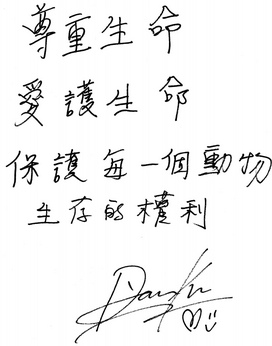 尊重生命
愛護生命
保護每一個動物
生存的權利